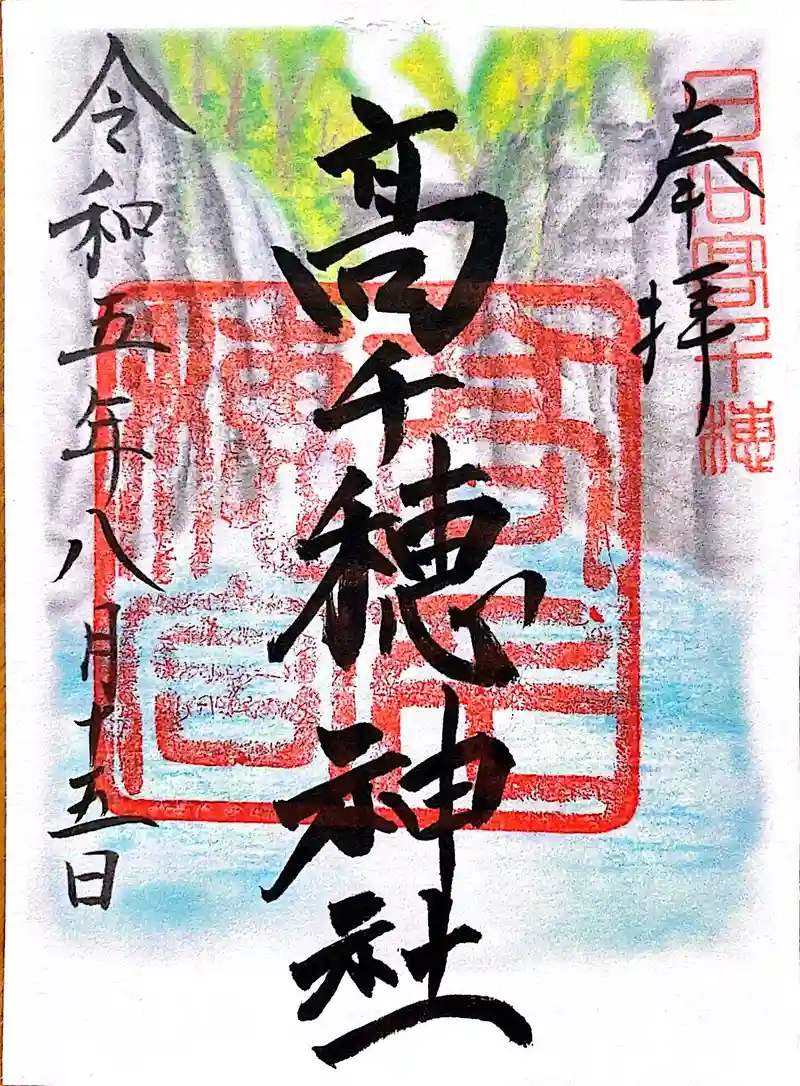 奉拝
日向高千穂
高千穂神社
令和五年八月十五日